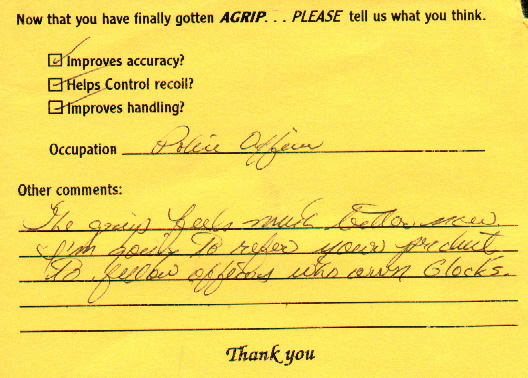 Now that you have finally gotten AGRIP. . . PLEASE tell us what you think.
Improves accuracy?
Helps Control recoil?
Improves handling?
Occupation Police Officer
Other comments:
The grip feels much better now
I'm going to refer your product
to fellow officers who own Glocks.
Thank you